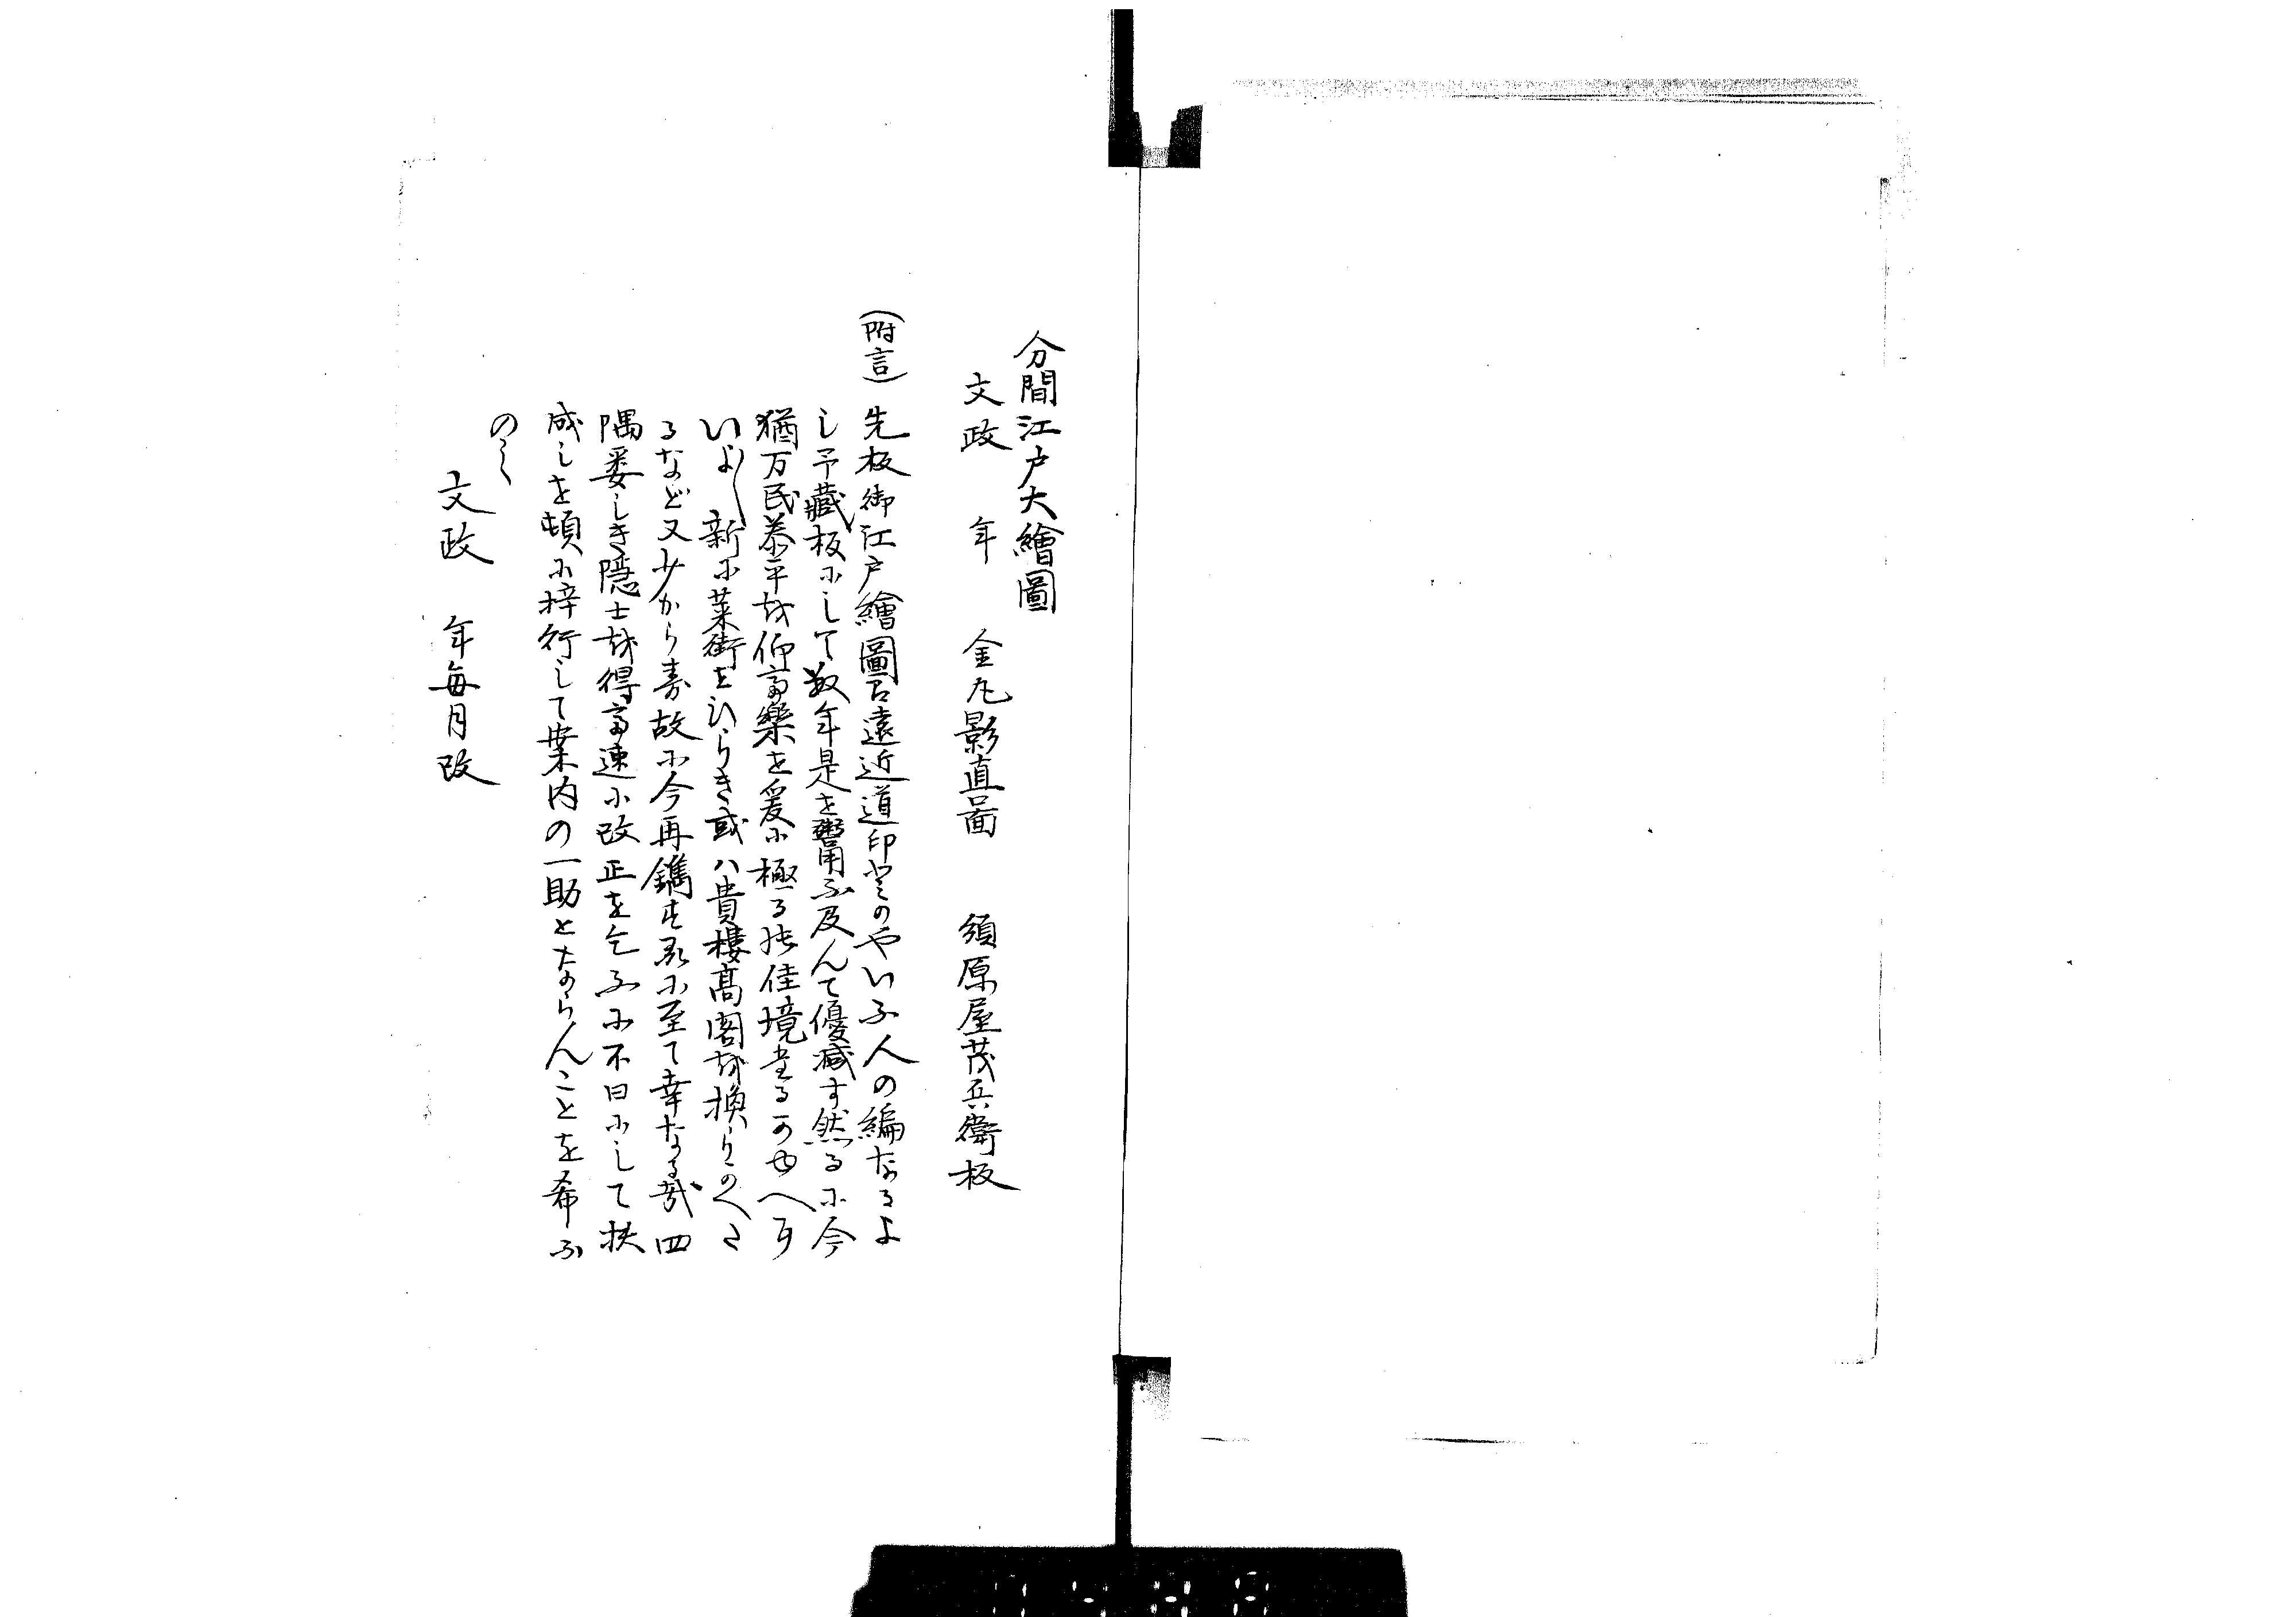 分間江戸大繪圖
文政　年　金丸影直圖　須原屋茂兵衛板
(附言)先板御江戸繪圖占遠近道印とのやいふ人の編なるよ
し予藏板にして数年是を鬻く及んて優減す然るに今
猶万民泰平を仰富樂を爰に極る佳境なるかゆへ
いよ〱新に菜街をひらき或ハ貴樓高閣を換りかへさ
るなど又少からす故に今再鐫に至て幸なる哉四
隅委しき隠士を得高速に改正を乞ふに不日にして挍
成しを頓に梓行して案内の一助とならんことを希ふ
のミ
文政　年毎月改